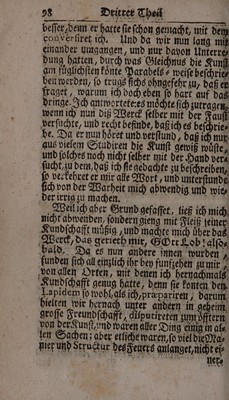 98 Dritter Theil
besser, denn er hatte sie schon gemacht, mit dem
conversiret ich. Und da wir nun lang mit
einander umgangen, und nur davon Unterre-
dung hatten, durch was Gleichnus die Kunst
am füglichsten könte Parabels-weise beschrie-
ben werden, so trugs sichs ohngefehr zu, daß er
fraget, warum ich doch eben so hart auf das
dringe. Ich antwortete: es möchte sich zutragen,
wenn ich nun diß Werck selber mit der Faust
versuchte, und recht befinde, daß ich es beschrie-
be. Da er nun hört und verstund, daß ich nur
aus vielem Studiren die Kunst gewiß wüste,
und solches noch nicht selber mit der Hand ver-
sucht, zu dem, daß ich sie gedachte zu beschreiben,
so verkehret er mir alle Wort, und unterstunds
sich von der Warheit mich abwendig und wie-
der irrig zu machen.
Weil ich aber Grund gefasset, ließ ich mich
nicht abwenden, sondern gieng mit Fleiß zeiner
Kundschafft müßig, und machte mich über das
Werck, das gerieth mir, GOtt Lob! alsö-
bald. Da es nun andere innen wurden,
funden sich all eintzlich ihr bey funfzehen zu mir,
von allen Orten, mit denen ich hernachmals
Kundschafft genug hatte, denn sie konten den
Lapidem so wohl, als ich, præpariren, darum
hielten wir hernach unter andern in geheim
grosse Freundschafft, disputireten zum öfftern
von der Kunst, und waren aller Ding einig in al-
len Sachen; aber etliche waren, so viel die Ma-
nier und Structur des Feuers anlanget, nicht ei-
ner-